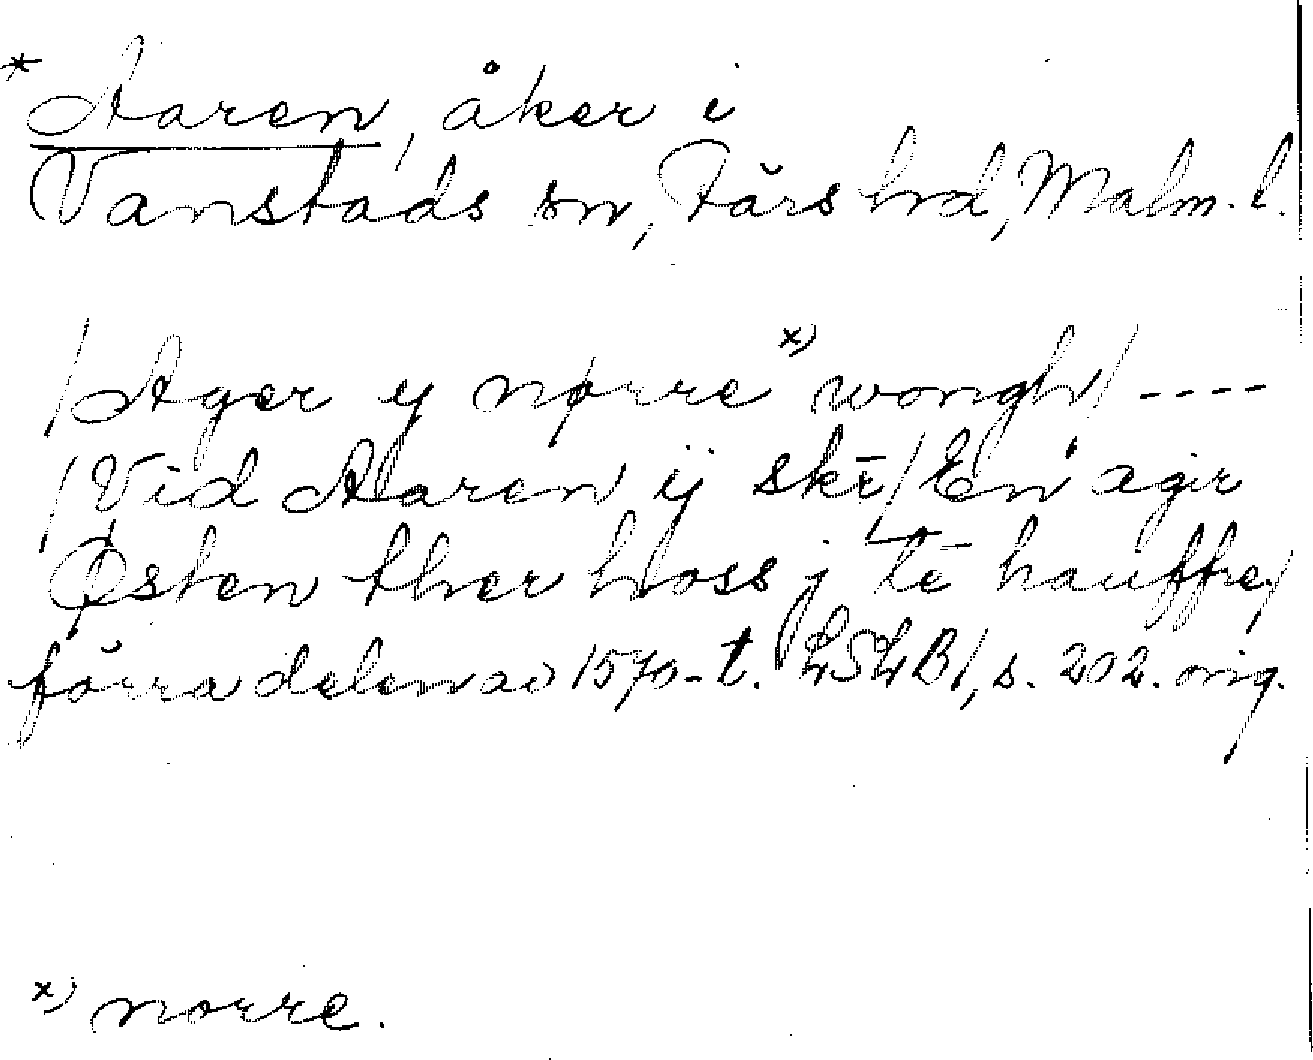 * Aaren, åker i
Vanstads sn, Färs hd, Malm. l.
/Ager y nørre x) wongh/ ----
/Vid Aaren ij skē/ En agir
Østen ther hoss j tē hauffre/
förra delen av 1570-t. LSLB1, s. 202. orig.
x) norre.